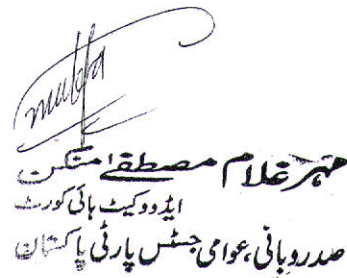 مہر غلام مصطفےٰ امتکن
ایڈووکیٹ ہائی کورٹ
صدر و بانی، عوامی جسٹس پارٹی پاکستان